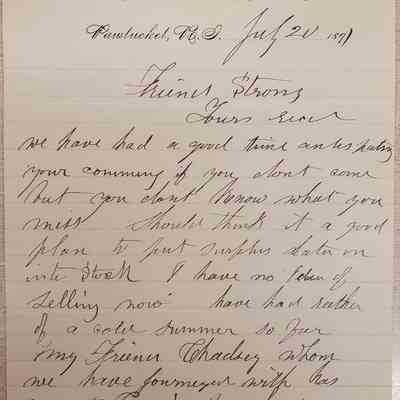 Pawtucket, R. I. July 20 1891
Friend Strong
Yours recd
we have had a good time antispating
your comming if you dont come
but you dont know what you
miss Should think it a good
plan to put surplus later on
into Stock I have no idea of
selling now have had rather
of a cold summer so far
my Friend Chadsey whom
we have journeyed with has